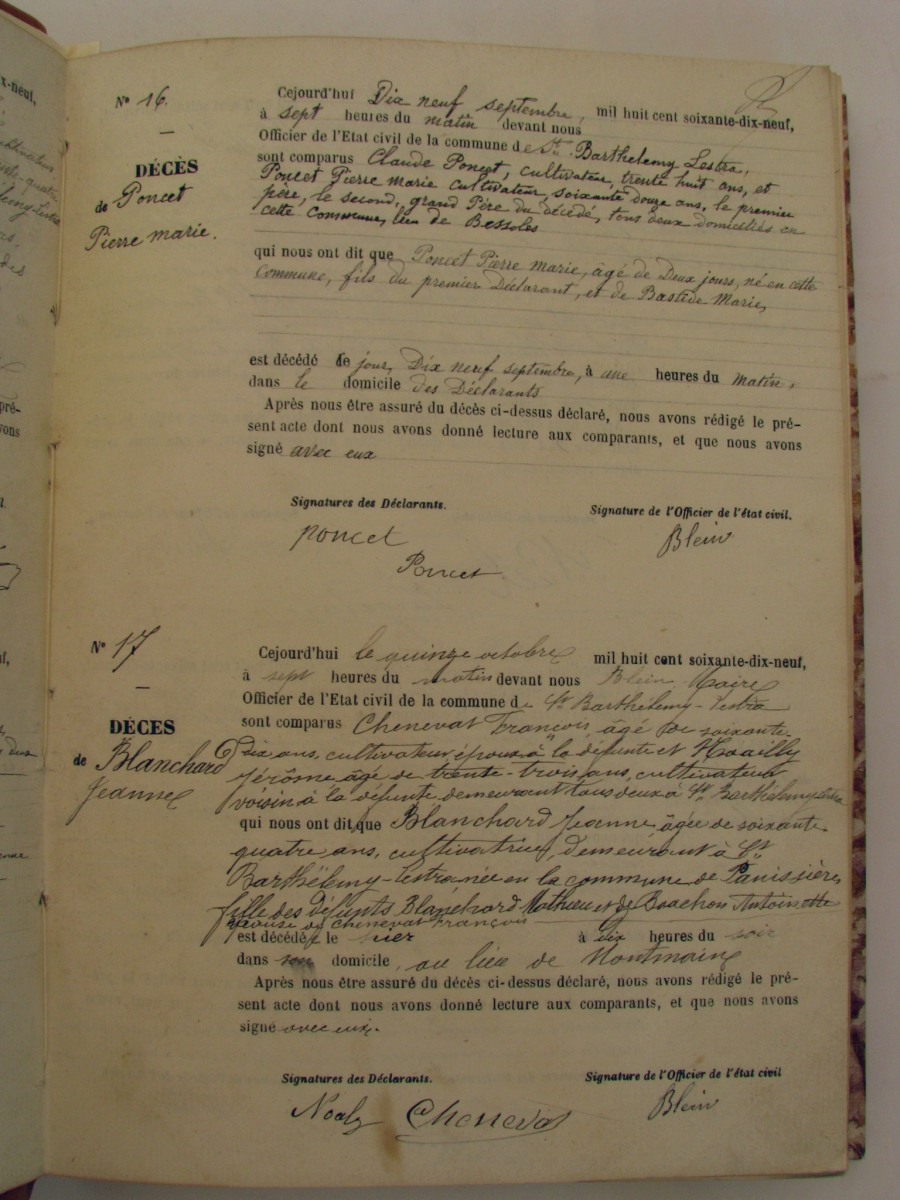 N° 16.
DÉCÈS
de Poncet
Pierre marie.
Cejourd'hui Dix neuf septembre, mil huit cent soixante-dix-neuf,
à sept heures du matin devant nous
Officier de l'Etat civil de la commune de St. Barthelemy Lestra,
sont comparus Claude Poncet, cultivateur, trente huit ans, et
Poncet Pierre marie cultivateur, soixante douze ans, le premier
père, le second, grand Père du décédé, tous deux domiciliés en
cette Commune, lieu de Bessoles
qui nous ont dit que Poncet Pierre marie, âgé de Deux jours, né en cette
Commune, fils du premier Déclarant, et de Bastide Marie,
est décédé ce jour, Dix neuf septembre, à une heures du matin,
dans le domicile des Déclarants
Après nous être assuré du décès ci-dessus déclaré, nous avons rédigé le pré-
sent acte dont nous avons donné lecture aux comparants, et que nous avons
signé avec eux
Signatures des Déclarants.
Signature de l'Officier de l'état civil.
Poncet
Blein
Poncet
N° 17
DÉCES
de Blanchard
Jeanne
Cejourd'hui le quinze octobre mil huit cent soixante-dix-neuf,
à sept heures du matin devant nous Blein Maire
Officier de l'Etat civil de la commune de St Barthélemy-Lestra
sont comparus Chenevat François, âgé de soixante-
dix ans, cultivateur, époux à la défunte et Noailly
Jérôme âgé de trente-trois ans, cultivateur
voisin à la défunte demeurant tous deux à St Barthélemy Lestra
qui nous ont dit que Blanchard Jeanne, âgée de soixante
quatre ans, cultivatrice, demeurant à St
Barthélemy-Lestra née en la commune de Panissières
fille des défunts Blanchard Mathieu et de Boachon Antoinette
épouse de Chenevat François
est décédée le hier à dix heures du soir
dans son domicile, au lieu de Montmain
Après nous être assuré du décès ci-dessus déclaré, nous avons rédigé le pré-
sent acte dont nous avons donné lecture aux comparants, et que nous avons
signé avec eux.
Signatures des Déclarants.
Signature de l'Officier de l'état civil
Noaly Chenevat
Blein